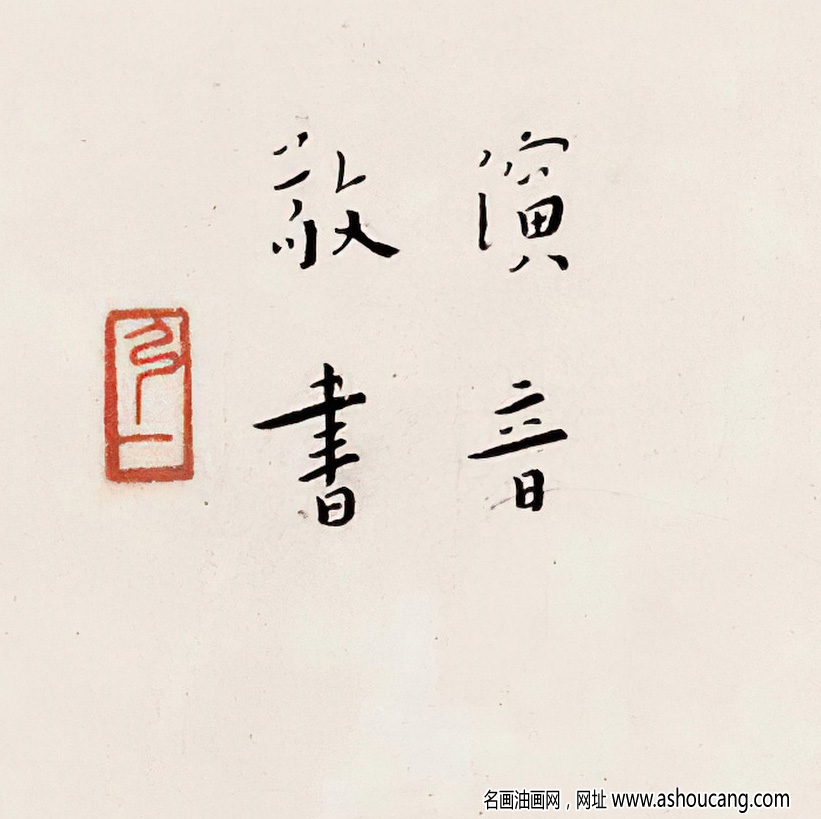 演音
敬書
弓一
名画油画网，网址 www.ashoucang.com